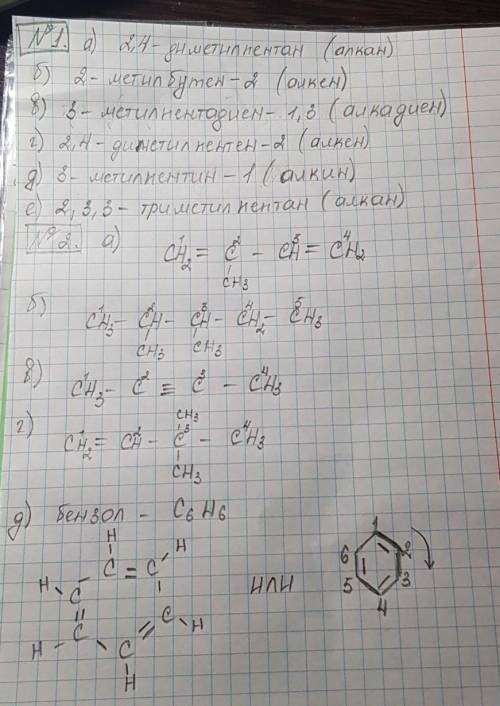 №1. а) 2,4-диметилпентан (алкан)
б) 2-метилбутен-2 (алкен)
в) 3-метилпентадиен-1,3 (алкадиен)
г) 2,4-диметилпентен-2 (алкен)
д) 3-метилпентин-1 (алкин)
е) 2,3,3-триметилпентан (алкан)
№2. а) CH2 = C - CH = CH2
1 2 3 4
CH3
б) CH3 - CH - CH - CH2 - CH3
1 2 3 4 5
CH3 CH3
в) CH3 - C ≡ C - CH3
1 2 3 4
CH3
г) CH2 = CH - C - CH3
1 2 3 4
CH3
д) бензол - C6H6
H
H C = C H
C C H
или
H C C
H
1
6 2
5 3
4